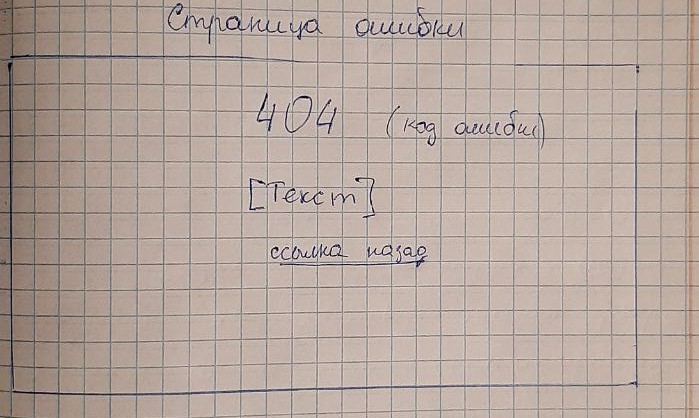 Страница ошибки
404 (код ошибки)
[Текст]
ссылка назад